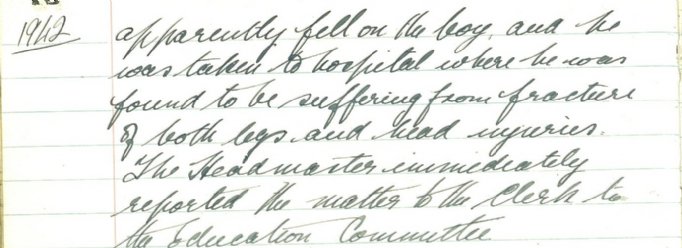 1942
apparently fell on the boy, and he
was taken to hospital where he was
found to be suffering from fracture
of both legs and head injuries.
The Headmaster immediately
reported the matter to the Clerk to
the Education Committee